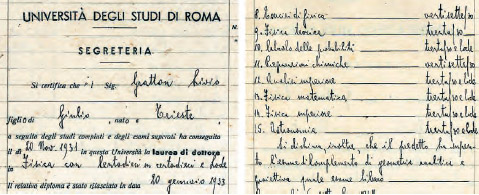 UNIVERSITÀ DEGLI STUDI DI ROMA
SEGRETERIA
Si certifica che il Sig. Gratton Livio
figlio di Giulio, nato a Trieste
a seguito degli studi compiuti e degli esami superati ha conseguito
il dì 20 Nov. 1931 in questa Università la laurea di dottore
Fisica con centodieci su centodieci e lode
Il relativo diploma è stato rilasciato in data 20 gennaio 1933
8. Esercizi di fisica ventisette/30
9. Fisica teorica trenta/30
10. Calcolo delle probabilità trenta/30 e lode
11. Preparazioni chimiche ventisette/30
12. Analisi superiore trenta/30 e lode
13. Fisica matematica trenta/30 e lode
14. Fisica superiore trenta/30 e lode
15. Astronomia trenta/30 e lode
Si dichiara inoltre, che il predetto ha supera-
to l'esame di Complemento di geometria analitica e
proiettiva quale esame libero